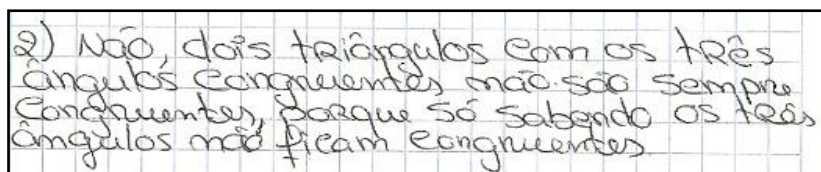 2) Não, dois triângulos com os três
ângulos congruentes não são sempre
congruentes, porque só sabendo os três
ângulos não ficam congruentes